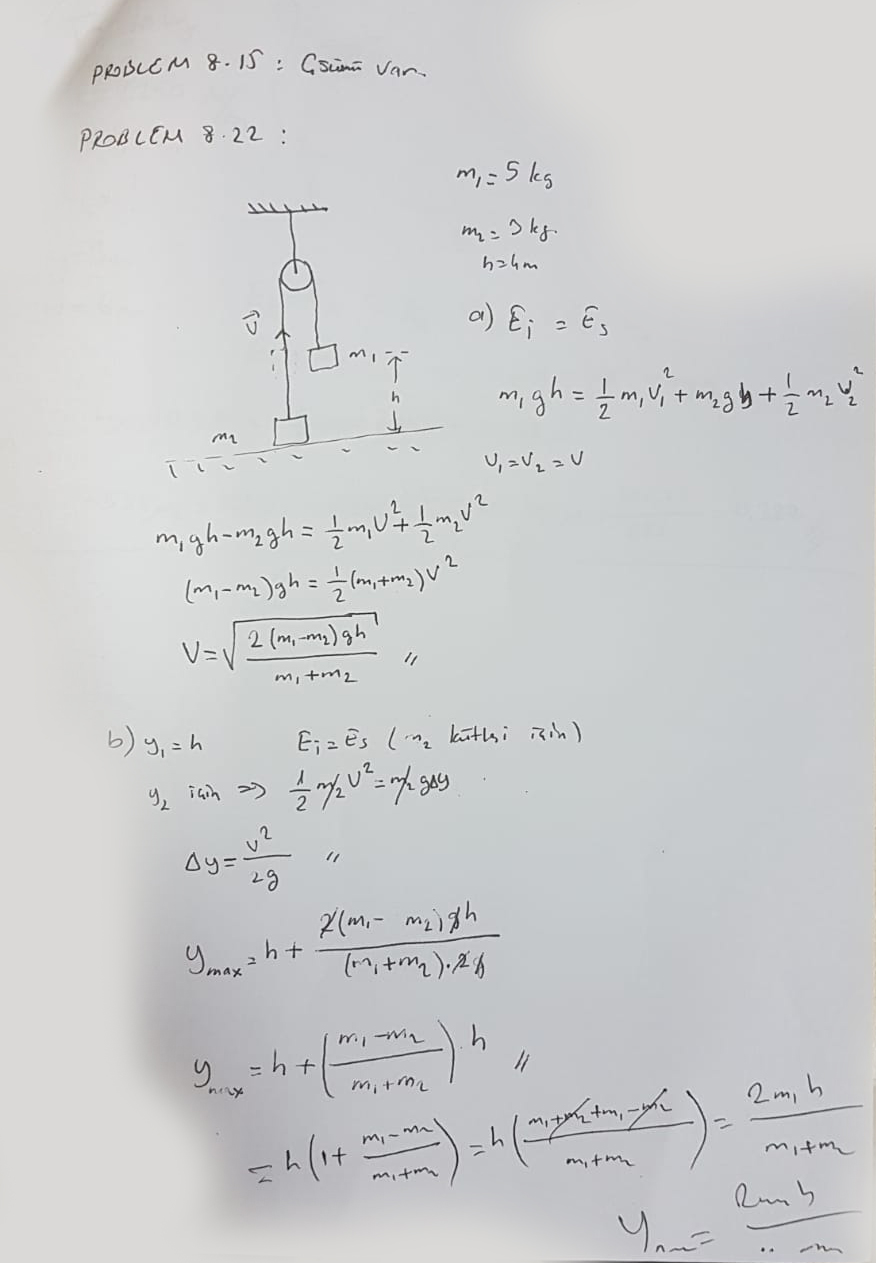 PROBLEM 8.15 : Çözümü var.
PROBLEM 8.22 :
m₁ = 5 kg
m₂ = 3 kg.
h = 4m
v⃗
m₁
h
m₂
a) Eᵢ = Eₛ
m₁gh = 1/2 m₁v₁² + m₂gh + 1/2 m₂v₂²
v₁ = v₂ = v
m₁gh - m₂gh = 1/2 m₁v² + 1/2 m₂v²
(m₁-m₂)gh = 1/2 (m₁+m₂)v²
v = √(2(m₁-m₂)gh / (m₁+m₂)) //
b) y₁ = h Eᵢ = Eₛ (m₂ kütlesi için)
y₂ için => 1/2 m₂v² = m₂gΔy
Δy = v²/2g //
y_max = h + 2(m₁ - m₂)gh / ((m₁+m₂).2g)
y_max = h + ((m₁-m₂)/(m₁+m₂)).h //
= h(1 + (m₁-m₂)/(m₁+m₂)) = h((m₁+m₂+m₁-m₂)/(m₁+m₂)) = 2m₁h/(m₁+m₂)